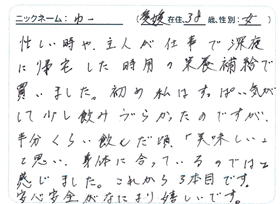 ニックネーム：ゆー （愛媛在住、38歳、性別：女）
忙しい時や、主人が仕事で深夜
に帰宅した時用の栄養補給で
買いました。初め私はすっぱい気が
して少し飲みづらかったのですが、
半分くらい飲んだ頃、「美味しい」
と思い、身体に合っているのではと
感じました。これから3本目です。
安心安全がなにより嬉しいです。